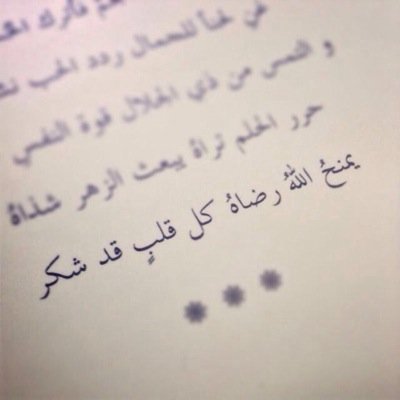 في لحناً للجمال ردد الحب
و التمس من ذي الجلال قوة النفس
حرر الحلم تراهُ يبعث الزهر شذاهُ
يمنحُ اللهُ رضاهُ كل قلبٍ قد شكر